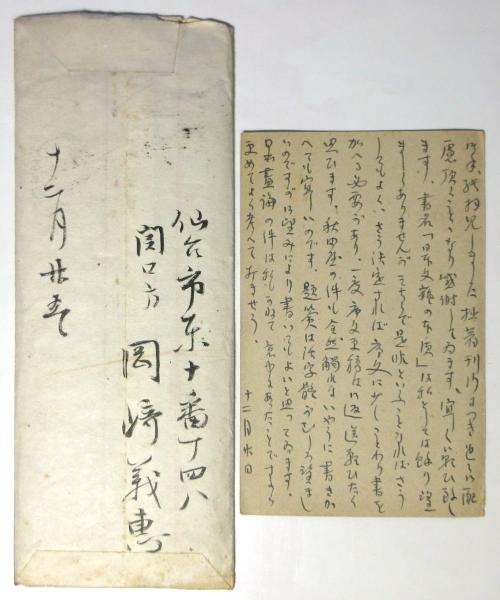 仙台市東十番丁四八
関口方 岡崎義惠
十二月廿五
御手紙拝見しました 拙著刊行につき色々配
慮頂くことになり感謝して居ます。宜しく御願ひ致し
ます。書名「日本文藝の本質」は私としては餘り望
ましくありませんがそちらで是非といふことなればさう
してもよく、さう決定されれば序文に少しことわり書を
加へる必要があり、一度序文原稿は御返送願ひたく
思ひます。秋田屋の件も全然觸れないやうに書きか
へても宜しいのです。題簽は活字體がむしろ望まし
いのですが御望みにより書いてもよいと思って居ます。
の件は私も あったことですから
更めてよく考へて見ませう。
十二月廿日